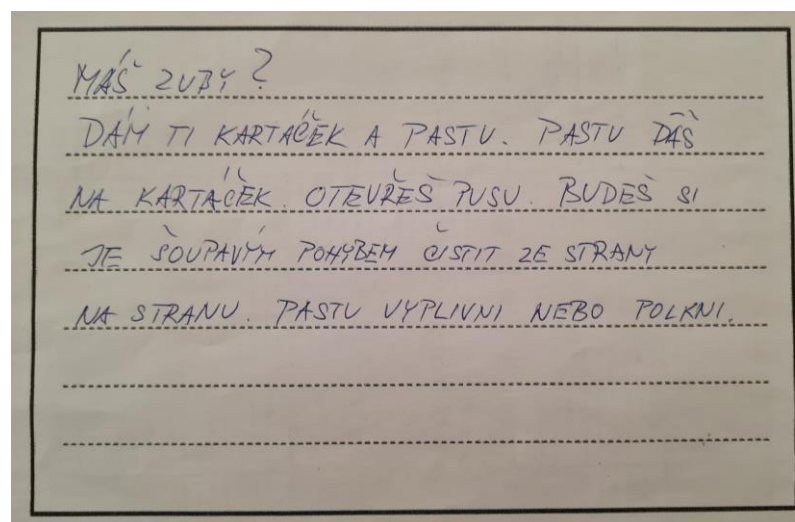 MÁŠ ZUBY?
DÁM TI KARTÁČEK A PASTU. PASTU DÁŠ
NA KARTÁČEK. OTEVŘEŠ PUSU. BUDEŠ SI
JE ŠOUPAVÝM POHYBEM ČISTIT ZE STRANY
NA STRANU. PASTU VYPLIVNI NEBO POLKNI.